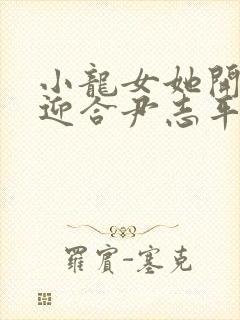 小龍女她開
迎合尹志平
羅賓-塞克